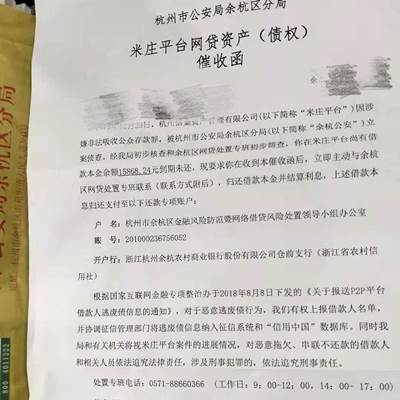 杭州市公安局余杭区分局
米庄平台网贷资产（债权）
催收函
管理有限公司（以下简称“米庄平台”）因涉
嫌非法吸收公众存款罪，被杭州市公安局余杭区分局(以下简称“余杭公安”)立
案侦查。经我局初步核查和余杭区网贷处置专班初步筛查，你在米庄平台尚有借
款本金金额15868.24元到期未还，现要求你在收到本催收函后，立即主动与余杭
区网贷处置专班联系（联系方式附后），归还借款本金并结算利息，上述借款本
息归还支付至以下还款专项账户：
户 名：杭州市余杭区金融风险防范暨网络借贷风险处置领导小组办公室
账 号：201000236756052
开户行：浙江杭州余杭农村商业银行股份有限公司仓前支行（浙江省农村信
用社）
根据国家互联网金融专项整治办于2018年8月8日下发的《关于报送P2P平台
借款人逃废债信息的通知》，对于恶意逃废债行为，我们有权上报借款人名单，
并协调征信管理部门将逃废债信息纳入征信系统和“信用中国”数据库。同时我
局和有关机关将视米庄平台案件的进展情况，对恶意拖欠、串联不还款的借款人
和相关人员依法追究法律责任，涉及刑事犯罪的，依法追究刑事责任。
处置专班电话：0571-88660366 （工作日：9：00-12：00，14：00-17：00）
公安局余杭区分局